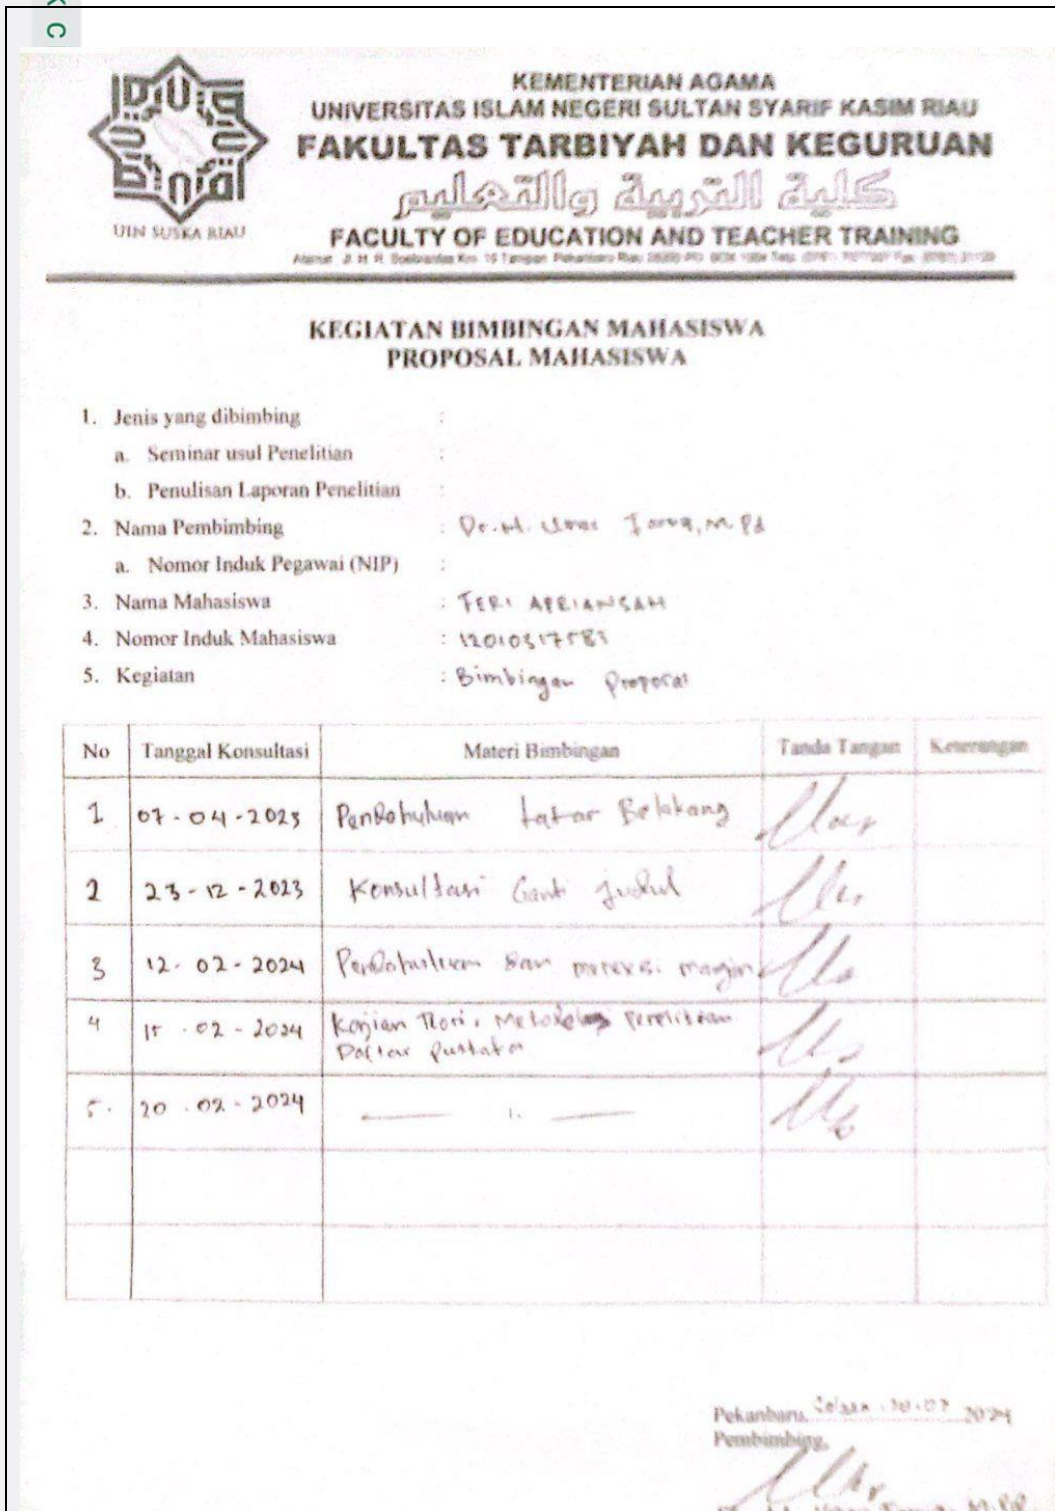 K C
KEMENTERIAN AGAMA
UNIVERSITAS ISLAM NEGERI SULTAN SYARIF KASIM RIAU
FAKULTAS TARBIYAH DAN KEGURUAN
كلية التربية والتعليم
UIN SUSKA RIAU
FACULTY OF EDUCATION AND TEACHER TRAINING
Alamat Jl. H. R. Soebrantas Km. 15 Tampan Pekanbaru Riau
KEGIATAN BIMBINGAN MAHASISWA
PROPOSAL MAHASISWA
1. Jenis yang dibimbing :
a. Seminar usul Penelitian :
b. Penulisan Laporan Penelitian :
2. Nama Pembimbing : Dr. H. M.Pd
a. Nomor Induk Pegawai (NIP) :
3. Nama Mahasiswa : FERI APRIANSAH
4. Nomor Induk Mahasiswa :
5. Kegiatan : Bimbingan Proposal
No Tanggal Konsultasi Materi Bimbingan Tanda Tangan Keterangan
1 07-04-2023 Pendahuluan Latar Belakang
2 23-12-2023 Konsultasi Ganti Judul
3 12-02-2024 Pendahuluan dan margin
4 15-02-2024 Kajian Teori, Metodologi Penelitian
Daftar Pustaka
5. 20-02-2024
Pekanbaru, 2024
Pembimbing,